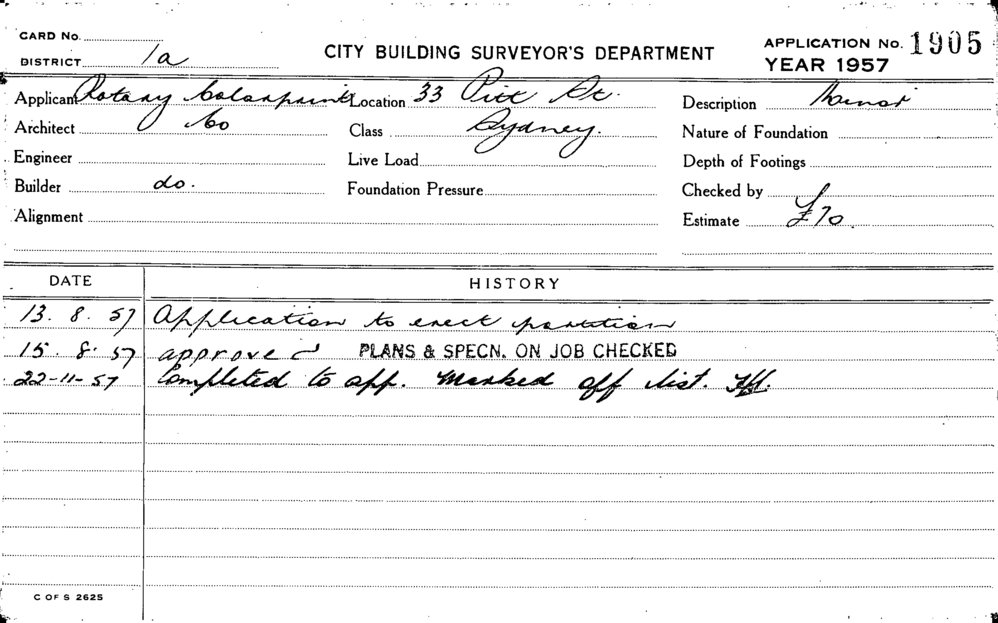 CARD No.
DISTRICT 1a
CITY BUILDING SURVEYOR'S DEPARTMENT
APPLICATION No. 1905
YEAR 1957
Applicant Rotary Colorprint Location 33 Pitt St. Description Minor
Architect Co Class Sydney. Nature of Foundation
Engineer Live Load Depth of Footings
Builder do. Foundation Pressure Checked by
Alignment Estimate £70
DATE HISTORY
13. 8. 57 Application to erect partition
15. 8. 57 approved PLANS & SPECN. ON JOB CHECKED
22-11-57 Completed to app. Marked off list.
C OF S 2625